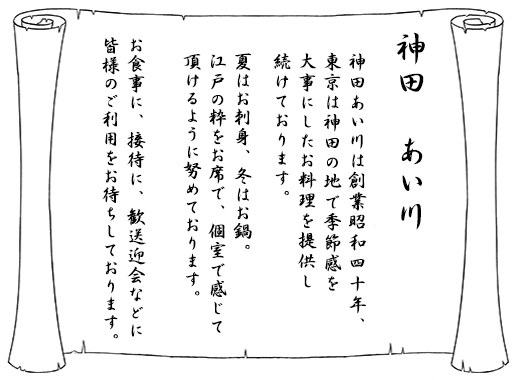 神田　あい川
神田あい川は創業昭和四十年、
東京は神田の地で季節感を
大事にしたお料理を提供し
続けております。
夏はお刺身、冬はお鍋。
江戸の粋をお席で、個室で感じて
頂けるように努めております。
お食事に、接待に、歓送迎会などに
皆様のご利用をお待ちしております。